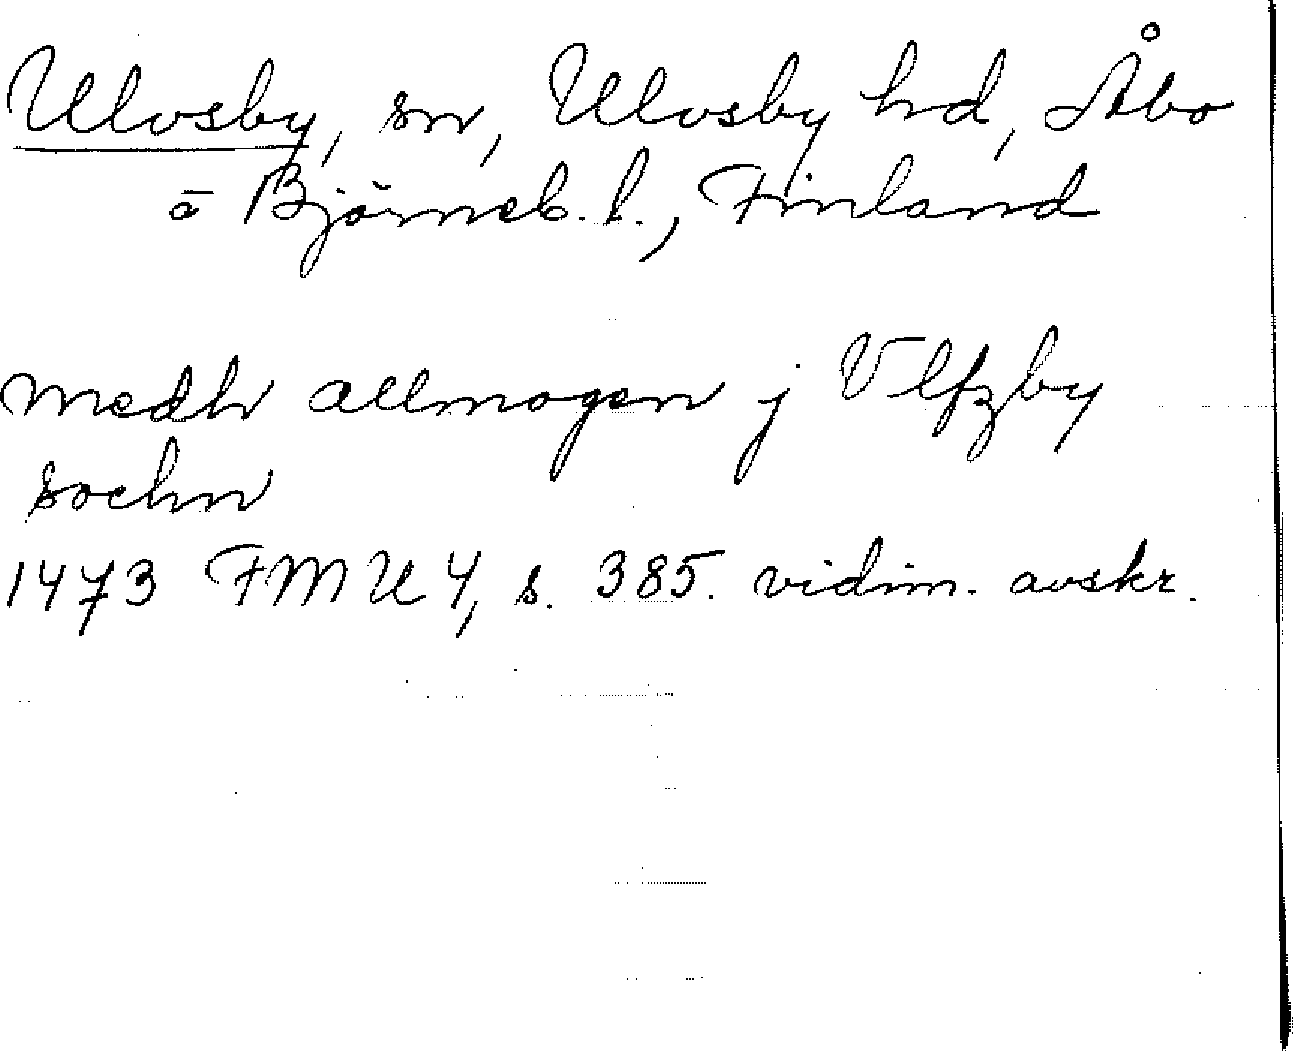 Ulvsby, sn, Ulvsby hd, Åbo
o Björneb. l., Finland
medh allmogen j Vlfzby
sochn
1473 FMU 4, s. 385. vidim. avskr.